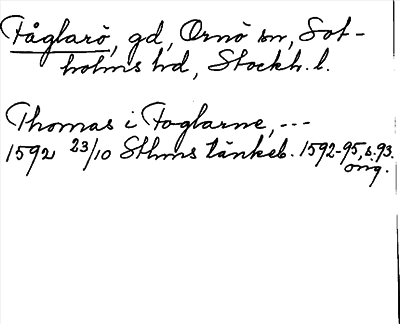 Fåglarö, gd, Ornö sn, Sot-
holms hd, Stockh. l.
Thomas i Foglarne, ---
1592 23/10 Sthms tänkeb. 1592-95, s. 93.
orig.